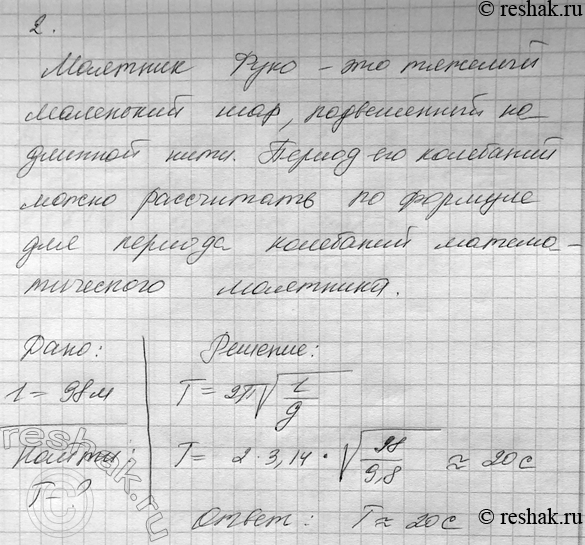 © reshak.ru
2.
Маятник Фуко – это тяжелый
маленький шар, подвешенный на
длинной нити. Период его колебаний
можно рассчитать по формуле
для периода колебаний матема-
тического маятника.
Дано: Решение:
l = 98м T = 2π√(l/g)
Найти: T = 2·3,14·√(98/9,8) ≈ 20с
T - ?
Ответ: T ≈ 20с
reshak.ru
© reshak.ru